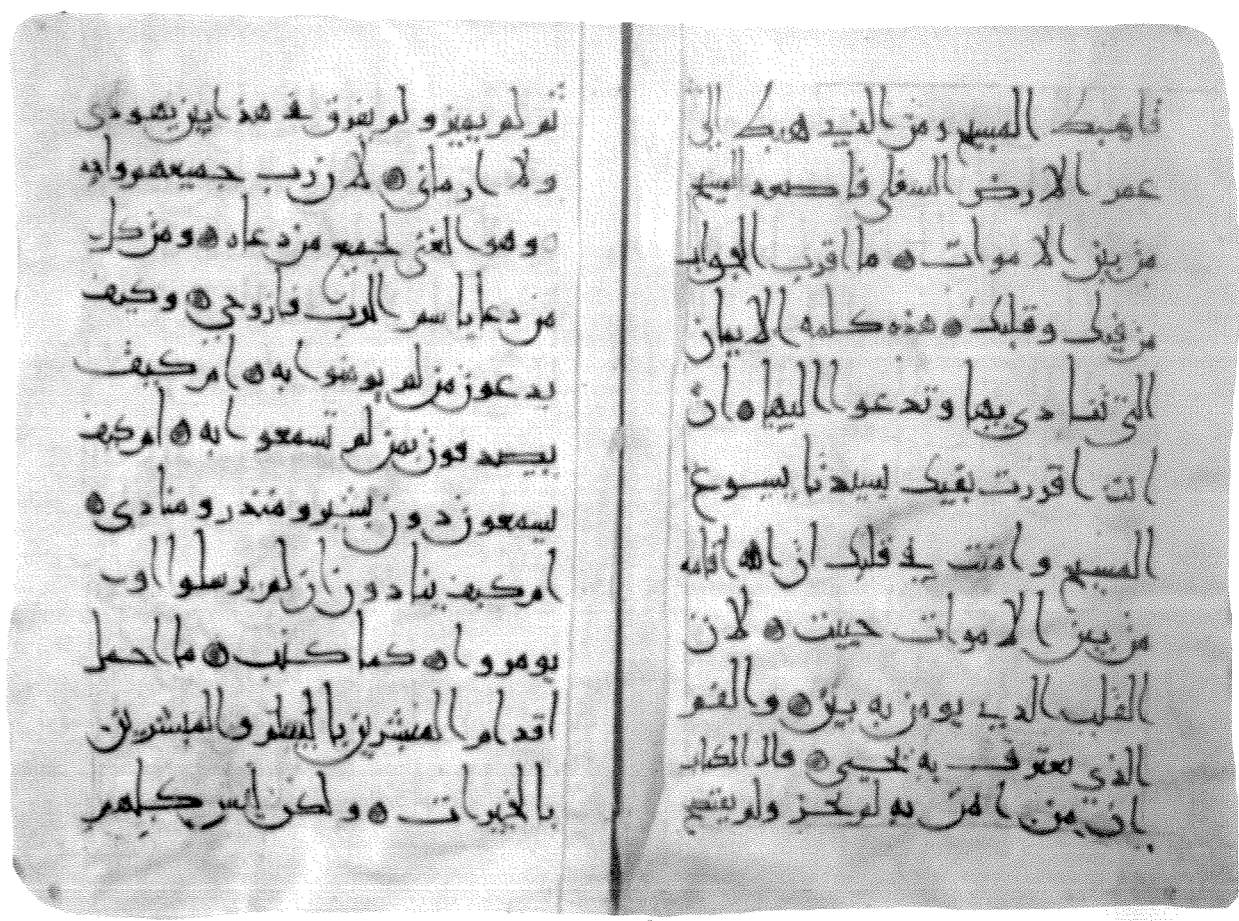 فاهبك المسيح ومن الذي هبك الى
عمر الارض السفلى فاصعد المسيح
من بين الاموات ۞ ما اقرب الجواب
من فيك وقلبك ۞ هذه كلمه الايمان
التي تنادي بها وتدعوا اليها ۞ ان
انت اقررت بفيك لسيدنا يسوع
المسيح وامنت في قلبك ان الله اقامه
من بين الاموات حييت ۞ لان
القلب الدي يومن به يبر ۞ والفم
الذي يعترف به يحيى ۞ قال الكتاب
ان من امن به لم يخز ولم يفتضح
ثم لم يميز ولم يفرق في هذا بين يهودي
ولا ارماني ۞ لان رب جميعهم واحد
وهو الغني لجميع من دعاه ۞ ومن كل
من دعا باسم الرب فازوحي ۞ وكيف
يدعون من لم يومنوا به ۞ ام كيف
يصدقون بمن لم تسمعوا به ۞ ام كيف
يسمعون دون بشير ومنذر ومنادي ۞
ام كيف ينادون ان لم يرسلوا او
يومروا ۞ كما كتب ۞ ما اجمل
اقدام المبشرين بالسلم والمبشرين
بالخيرات ۞ ولكن ليس كلهم